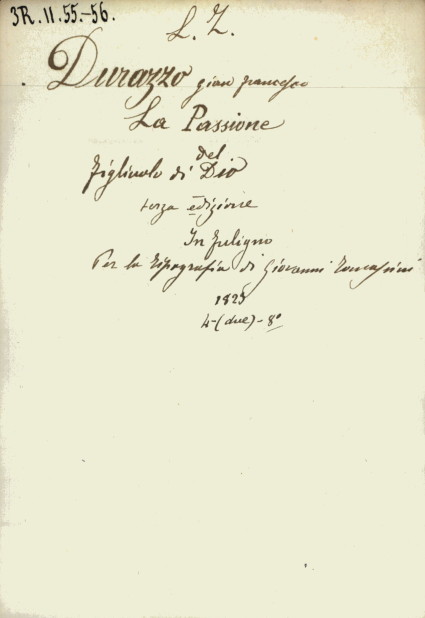 3R. 11. 55.-56.
L. Z.
Durazzo gian francesco
La Passione
del
figliuolo di Dio
terza edizione
In fuligno
Per la tipografia di Giovanni Tomassini
1825
4-(due)-8º